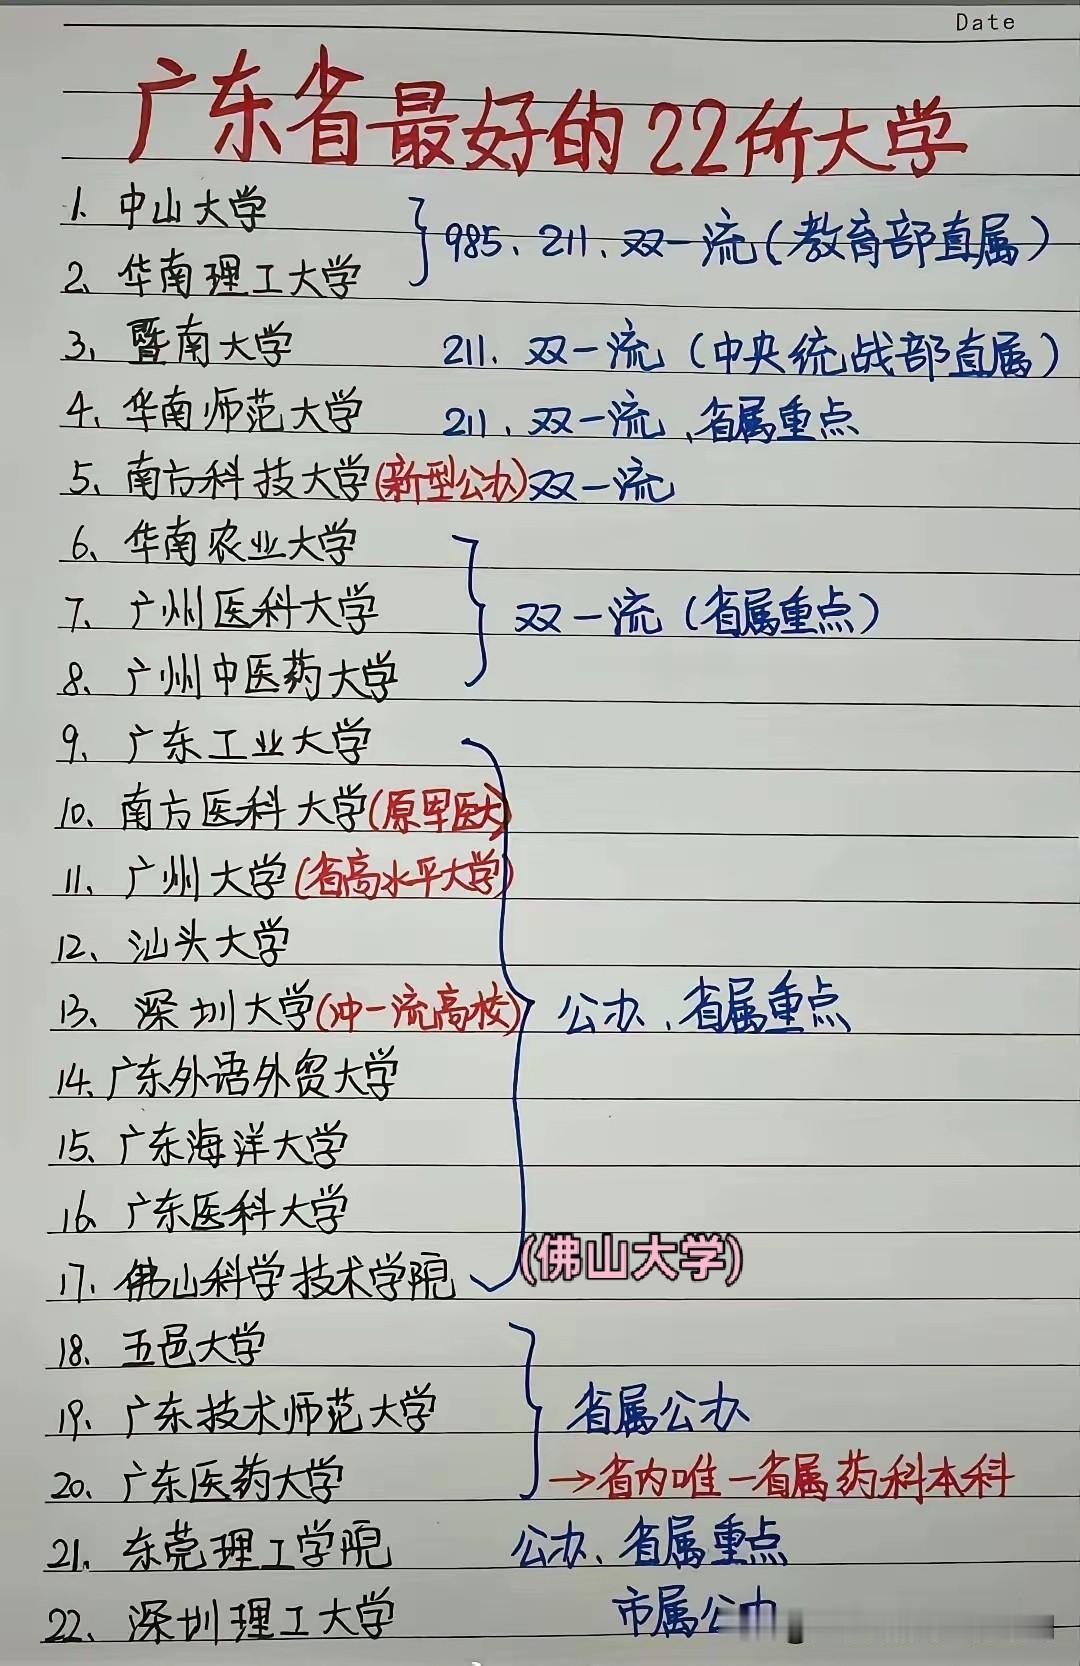 Date
广东省最好的22所大学
1. 中山大学
2. 华南理工大学
985、211、双一流(教育部直属)
3、暨南大学 211、双一流(中央统战部直属)
4、华南师范大学 211、双一流、省属重点
5、南方科技大学(新型公办)双一流
6、华南农业大学
7、广州医科大学
8、广州中医药大学
双一流(省属重点)
9、广东工业大学
10、南方医科大学(原军医大)
11、广州大学(省高水平大学)
12、汕头大学
13、深圳大学(冲一流高校)
14、广东外语外贸大学
15、广东海洋大学
16、广东医科大学
17、佛山科学技术学院
(佛山大学)
公办、省属重点
18、五邑大学
19、广东技术师范大学
20、广东医药大学
省属公办
→省内唯一省属药科本科
21、东莞理工学院 公办、省属重点
22、深圳理工大学 市属公办